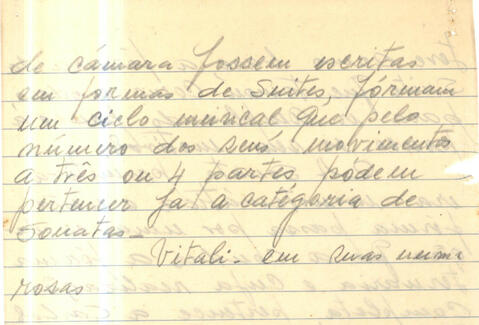 de cámara fossem escritas
em formas de Suites, fórmam
um ciclo musical que pelo
número dos seus movimentos
a três ou 4 partes pódem
pertencer já a catégoria de
Sonatas_
Vitali. em suas nume
rosas